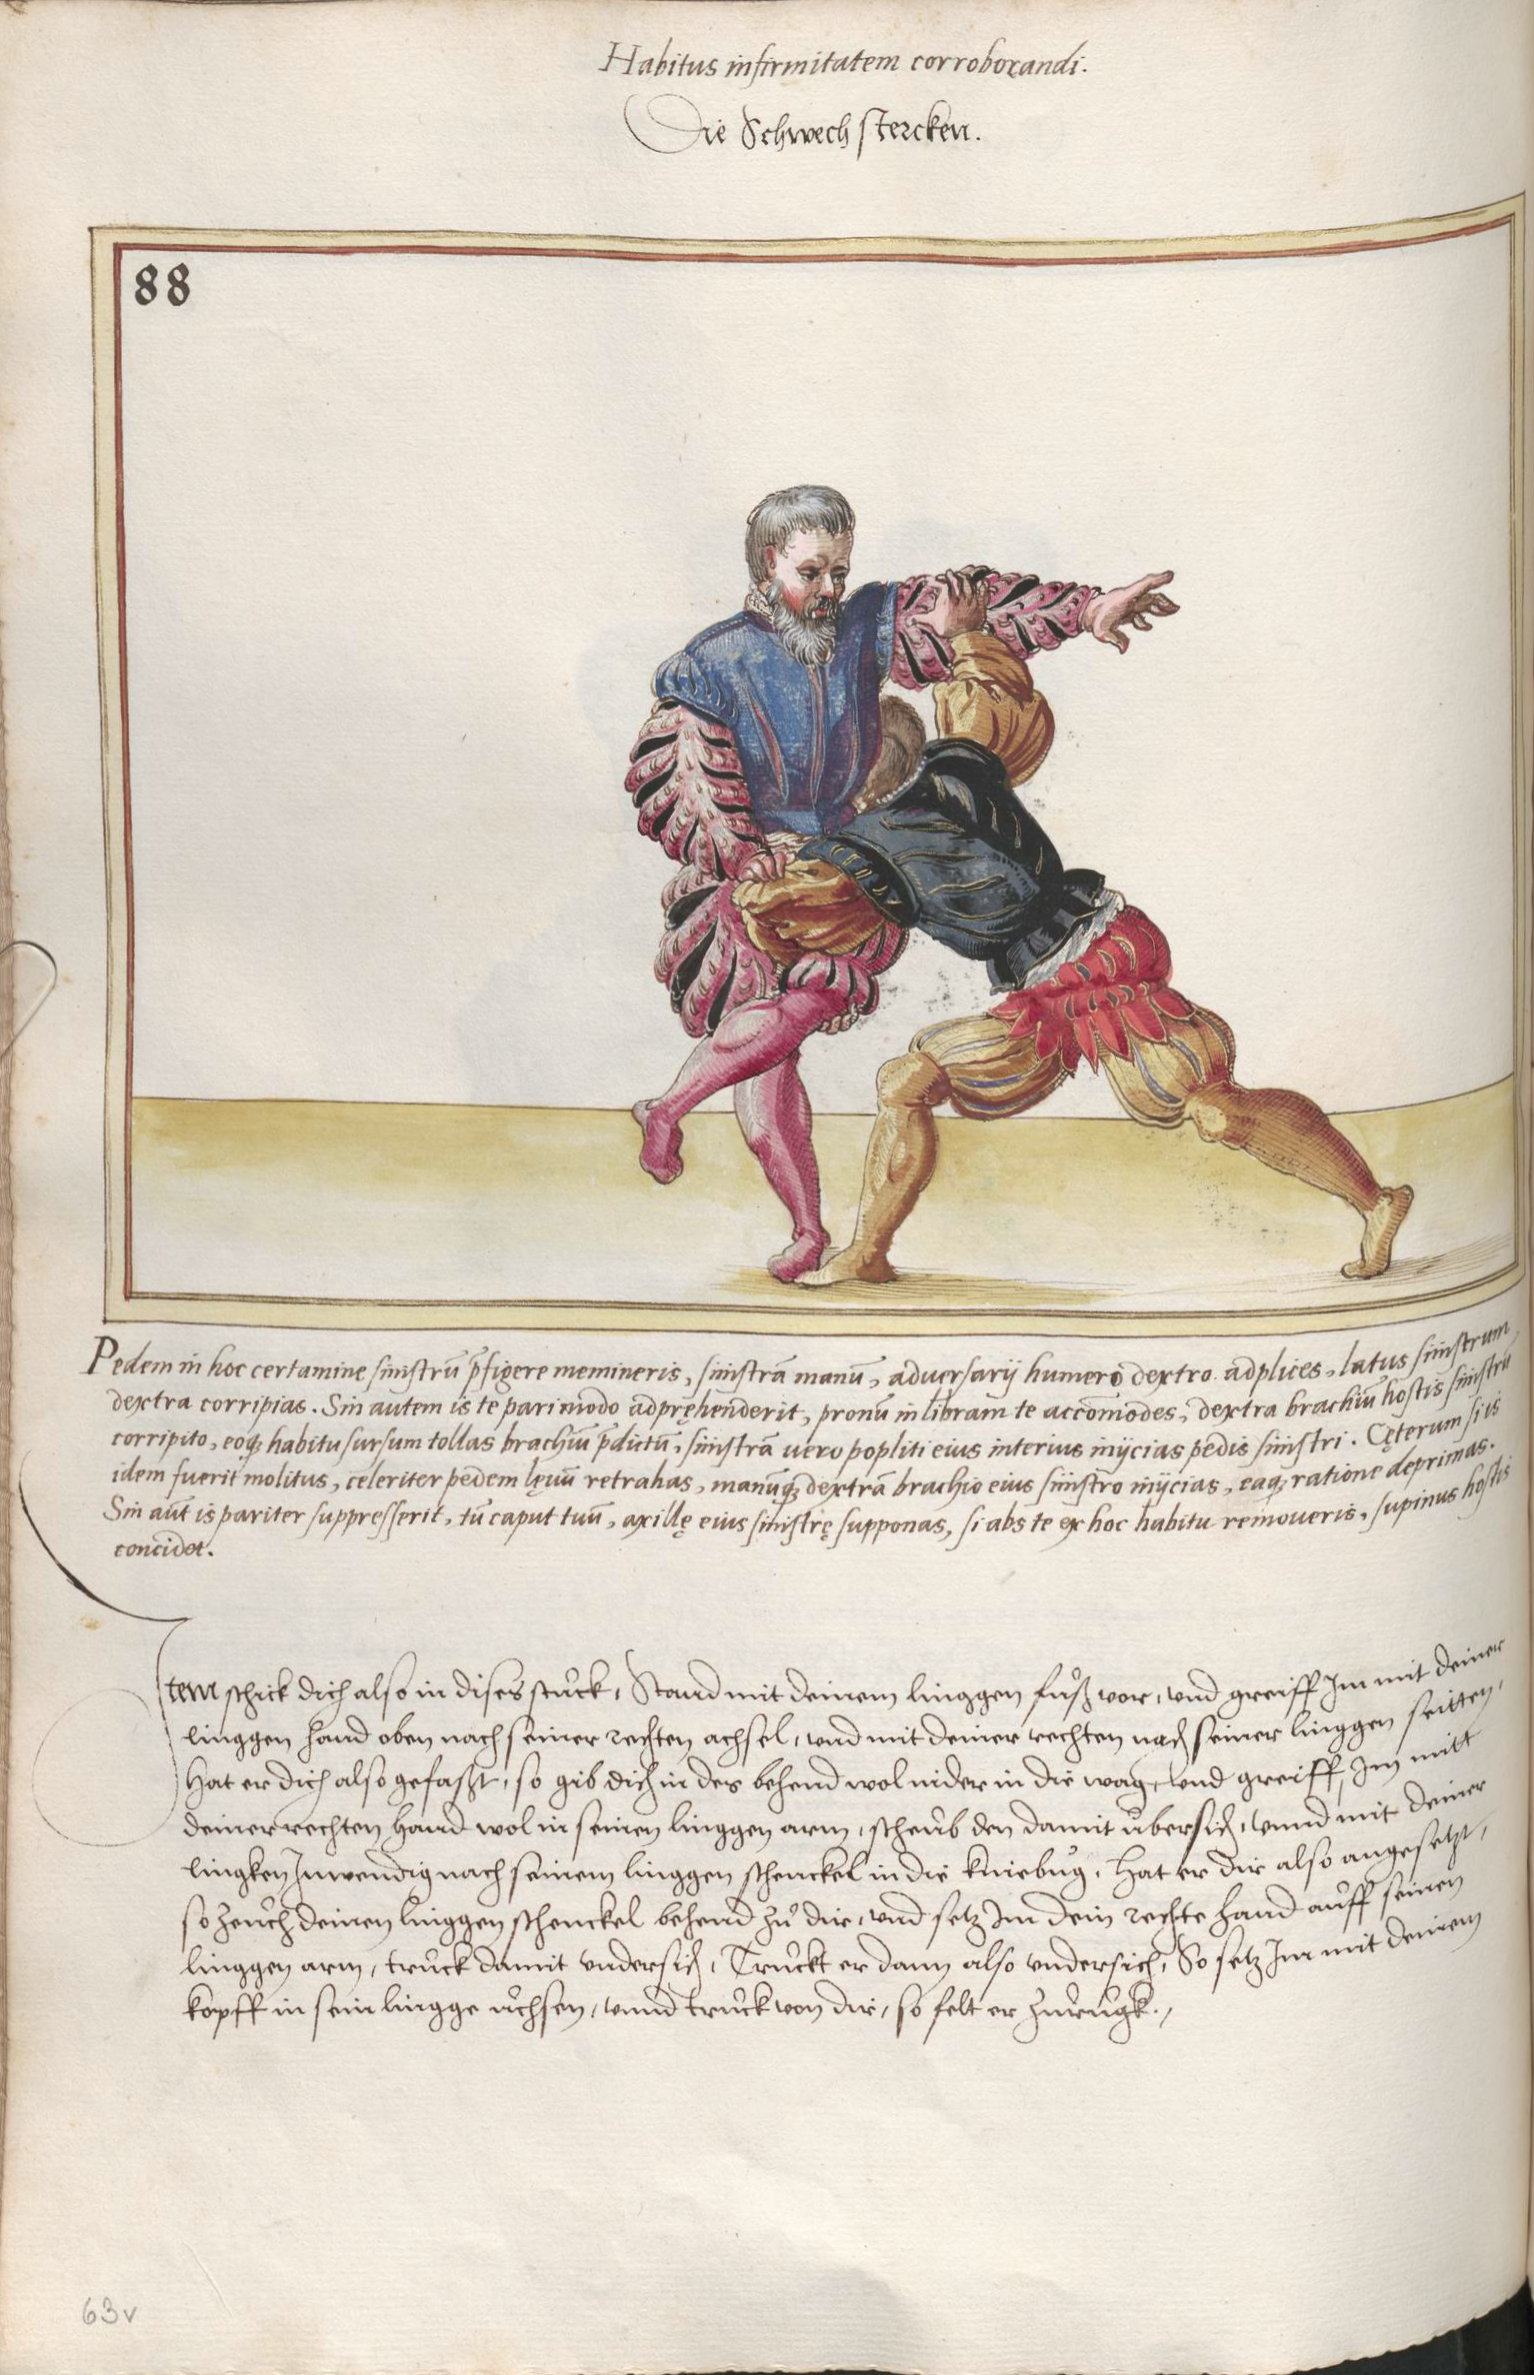 Habitus infirmitatem corroborandi.
Die Schwech stercken.
88
Pedem in hoc certamine sinistrū p̄figere memineris, sinistrā manū, adversarij humero dextro adplices, latus sinistrum
dextra corripias. Sin autem is te pari modo adpręhenderit, pronū in libram te accom̄odes, dextra brachiū hostis sinistrū
corripito, eoq; habitu sursum tollas brachiū p̄dictū, sinistrā uero popliti eius interius inijcias pedis sinistri. Cęterum si is
idem fuerit molitus, celeriter pedem lęuū retrahas, manūq; dextrā brachio eius sinistro inijcias, eaq; ratione deprimas.
Sin aut̄ is pariter suppresserit, tū caput tuū, axillę eius sinistrę supponas, si abs te ex hoc habitu remoueris, supinus hostis
concidet.
Item schick dich also in dises stuck, Stand mit deinem linggen fuͦß vor, vnd greiff Im mit deiner
linggen hand oben nach seiner rechten achsel, vnd mit deiner rechten nach seiner linggen seitten,
Hat er dich also gefaßt, so gib dich in des behend wol nider in die wag, vnd greiff Im mitt
deiner rechten hand wol in seinen linggen arm, scheub den damit übersich, vnnd mit deiner
lingken Inwendig nach seinem linggen schenckel in die kniebug, Hat er dir also angesetzt,
so zeuch deinen linggen schenckel behend zuͦ dir, vnd setz Im dein rechte hand auff seinen
linggen arm, truck damit vndersich, Truckt er dann also vndersich, So setz Im mit deinem
kopff in sein lingge uchsen, vnnd truck von dir, so felt er zurugk.
63v